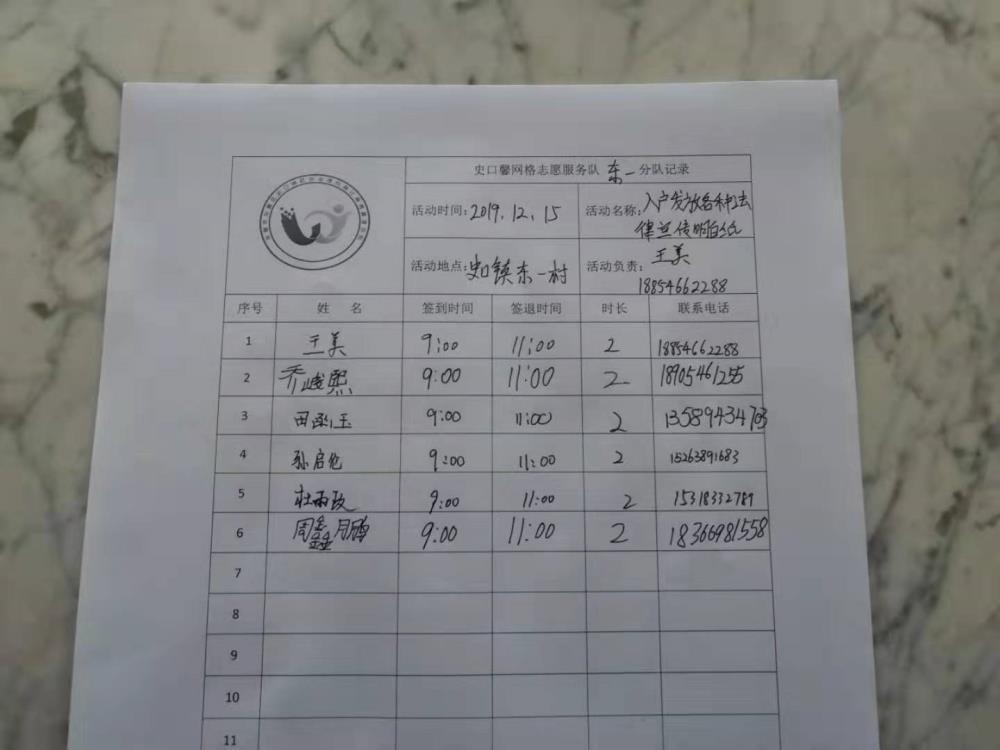 史口馨网格志愿服务队 东一 分队记录
活动时间:2019.12.15 活动名称:入户发放各种法
律宣传明白纸
活动地点:史口镇东一村 活动负责:王美
18854662288
序号 姓 名 签到时间 签退时间 时长 联系电话
1 王美 9:00 11:00 2 18854662288
2 乔峻熙 9:00 11:00 2 18905461255
3 田函玉 9:00 11:00 2 13589434703
4 孙启伦 9:00 11:00 2 15263891683
5 杜雨政 9:00 11:00 2 15318332789
6 周鑫鑫 9:00 11:00 2 18366981558
7
8
9
10
11